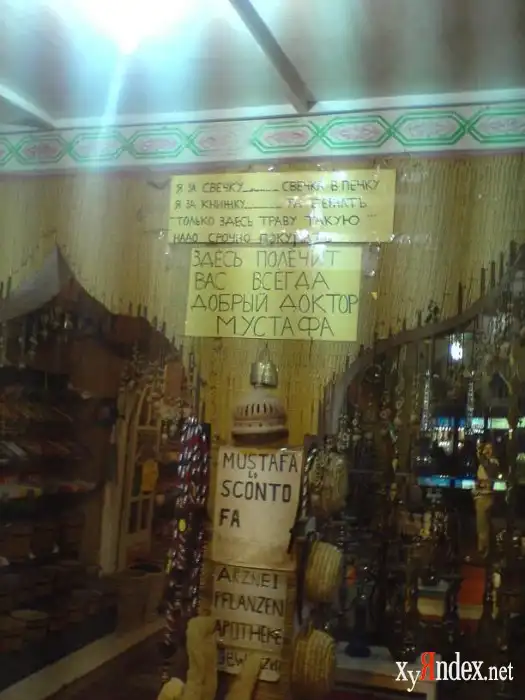 Я ЗА СВЕЧКУ ........ СВЕЧКА В ПЕЧКУ
Я ЗА КНИЖКУ ........ ТА БЕЖАТЬ
ТОЛЬКО ЗДЕСЬ ТРАВУ ТАКУЮ
НАДО СРОЧНО ПОКУПАТЬ
ЗДЕСЬ ПОЛЕЧИТ
ВАС ВСЕГДА
ДОБРЫЙ ДОКТОР
МУСТАФА
MUSTAFA
LO
SCONTO
FA
ARZNEI
PFLANZEN
APOTHEKE
xyЯndex.net